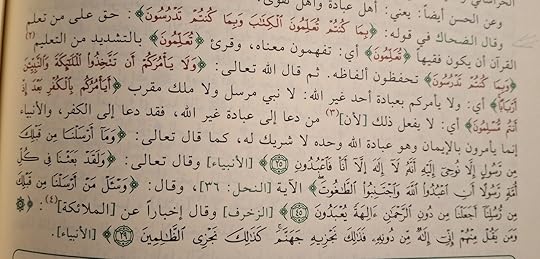 وعن الحسن أيضاً: يعني: أهل عبادة وأهل تقوى.
وقال الضحاك في قوله: ﴿بِمَا كُنتُمْ تُعَلِّمُونَ الْكِتَابَ وَبِمَا كُنتُمْ تَدْرُسُونَ﴾: حق على من تعلم
القرآن أن يكون فقيهاً ﴿تُعَلِّمُونَ﴾ أي: تفهمون معناه، وقرئ ﴿تُعَلِّمُونَ﴾ بالتشديد من التعليم (٢)
﴿وَبِمَا كُنتُمْ تَدْرُسُونَ﴾ تحفظون ألفاظه. ثم قال الله تعالى: ﴿وَلَا يَأْمُرَكُمْ أَن تَتَّخِذُوا الْمَلَائِكَةَ وَالنَّبِيِّينَ
أَرْبَابًا﴾ أي: ولا يأمركم بعبادة أحد غير الله: لا نبي مرسل ولا ملك مقرب ﴿أَيَأْمُرُكُم بِالْكُفْرِ بَعْدَ إِذْ
أَنتُم مُّسْلِمُونَ﴾ أي: لا يفعل ذلك [لأن](٣) من دعا إلى عبادة غير الله، فقد دعا إلى الكفر، والأنبياء
إنما يأمرون بالإيمان وهو عبادة الله وحده لا شريك له، كما قال تعالى: ﴿وَمَا أَرْسَلْنَا مِن قَبْلِكَ
مِن رَّسُولٍ إِلَّا نُوحِي إِلَيْهِ أَنَّهُ لَا إِلَٰهَ إِلَّا أَنَا فَاعْبُدُونِ ﴿٢٥﴾﴾ [الأنبياء] وقال تعالى: ﴿وَلَقَدْ بَعَثْنَا فِي كُلِّ
أُمَّةٍ رَّسُولًا أَنِ اعْبُدُوا اللَّهَ وَاجْتَنِبُوا الطَّاغُوتَ﴾ الآية [النحل: ٣٦]، وقال: ﴿وَسْئَلْ مَنْ أَرْسَلْنَا مِن قَبْلِكَ
مِن رُّسُلِنَا أَجَعَلْنَا مِن دُونِ الرَّحْمَٰنِ آلِهَةً يُعْبَدُونَ ﴿٤٥﴾﴾ [الزخرف] وقال إخباراً عن [الملائكة](٤):
﴿وَمَن يَقُلْ مِنْهُمْ إِنِّي إِلَٰهٌ مِّن دُونِهِ فَذَٰلِكَ نَجْزِيهِ جَهَنَّمَ كَذَٰلِكَ نَجْزِي الظَّالِمِينَ ﴿٢٩﴾﴾ [الأنبياء].